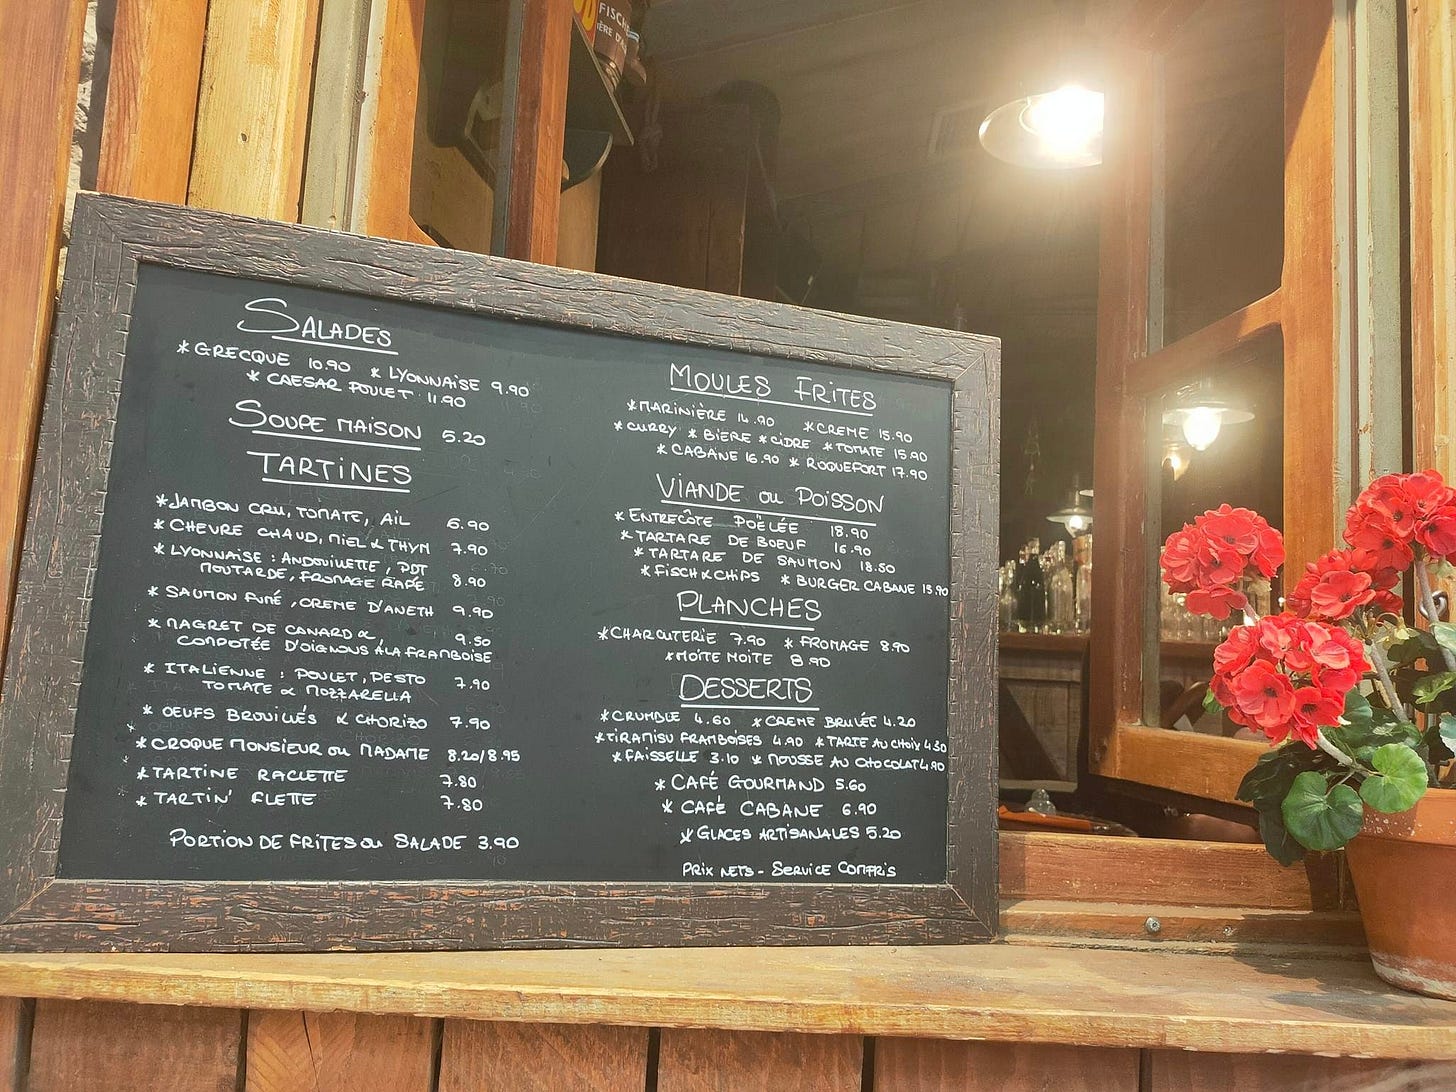 FISCH
IÈRE D'A
SALADES
* GRECQUE 10.90 * LYONNAISE 9.90
* CAESAR POULET 11.90
SOUPE MAISON 5.20
TARTINES
* JAMBON CRU, TOMATE, AIL 6.90
* CHEVRE CHAUD, MIEL & THYM 7.90
* LYONNAISE : ANDOUILLETTE, PDT
MOUTARDE, FROMAGE RAPÉ 8.90
* SAUMON FUMÉ, CREME D'ANETH 9.90
* MAGRET DE CANARD &, 9.50
COMPOTÉE D'OIGNOUS A LA FRAMBOISE
* ITALIENNE : POULET, PESTO 7.90
TOMATE & MOZZARELLA
* OEUFS BROUILLÉS & CHORIZO 7.90
* CROQUE MONSIEUR OU MADAME 8.20/8.95
* TARTINE RACLETTE 7.80
* TARTIN' FLETTE 7.80
PORTION DE FRITES OU SALADE 3.90
MOULES FRITES
* MARINIÈRE 14.90 * CREME 15.90
* CURRY * BIÈRE * CIDRE * TOMATE 15.90
* CABANE 16.90 * ROQUEFORT 17.90
VIANDE OU POISSON
* ENTRECÔTE POÊLÉE 18.90
* TARTARE DE BOEUF 16.90
* TARTARE DE SAUMON 18.50
* FISCH & CHIPS * BURGER CABANE 15.90
PLANCHES
* CHARCUTERIE 7.90 * FROMAGE 8.90
* MOITE MOITE 8.90
DESSERTS
* CRUMBLE 4.60 * CREME BRULÉE 4.20
* TIRAMISU FRAMBOISES 4.90 * TARTE AU CHOIX 4.50
* FAISSELLE 3.10 * MOUSSE AU CHOCOLAT 4.90
* CAFÉ GOURMAND 5.60
* CAFÉ CABANE 6.90
* GLACES ARTISANALES 5.20
PRIX NETS - SERVICE COMPRIS